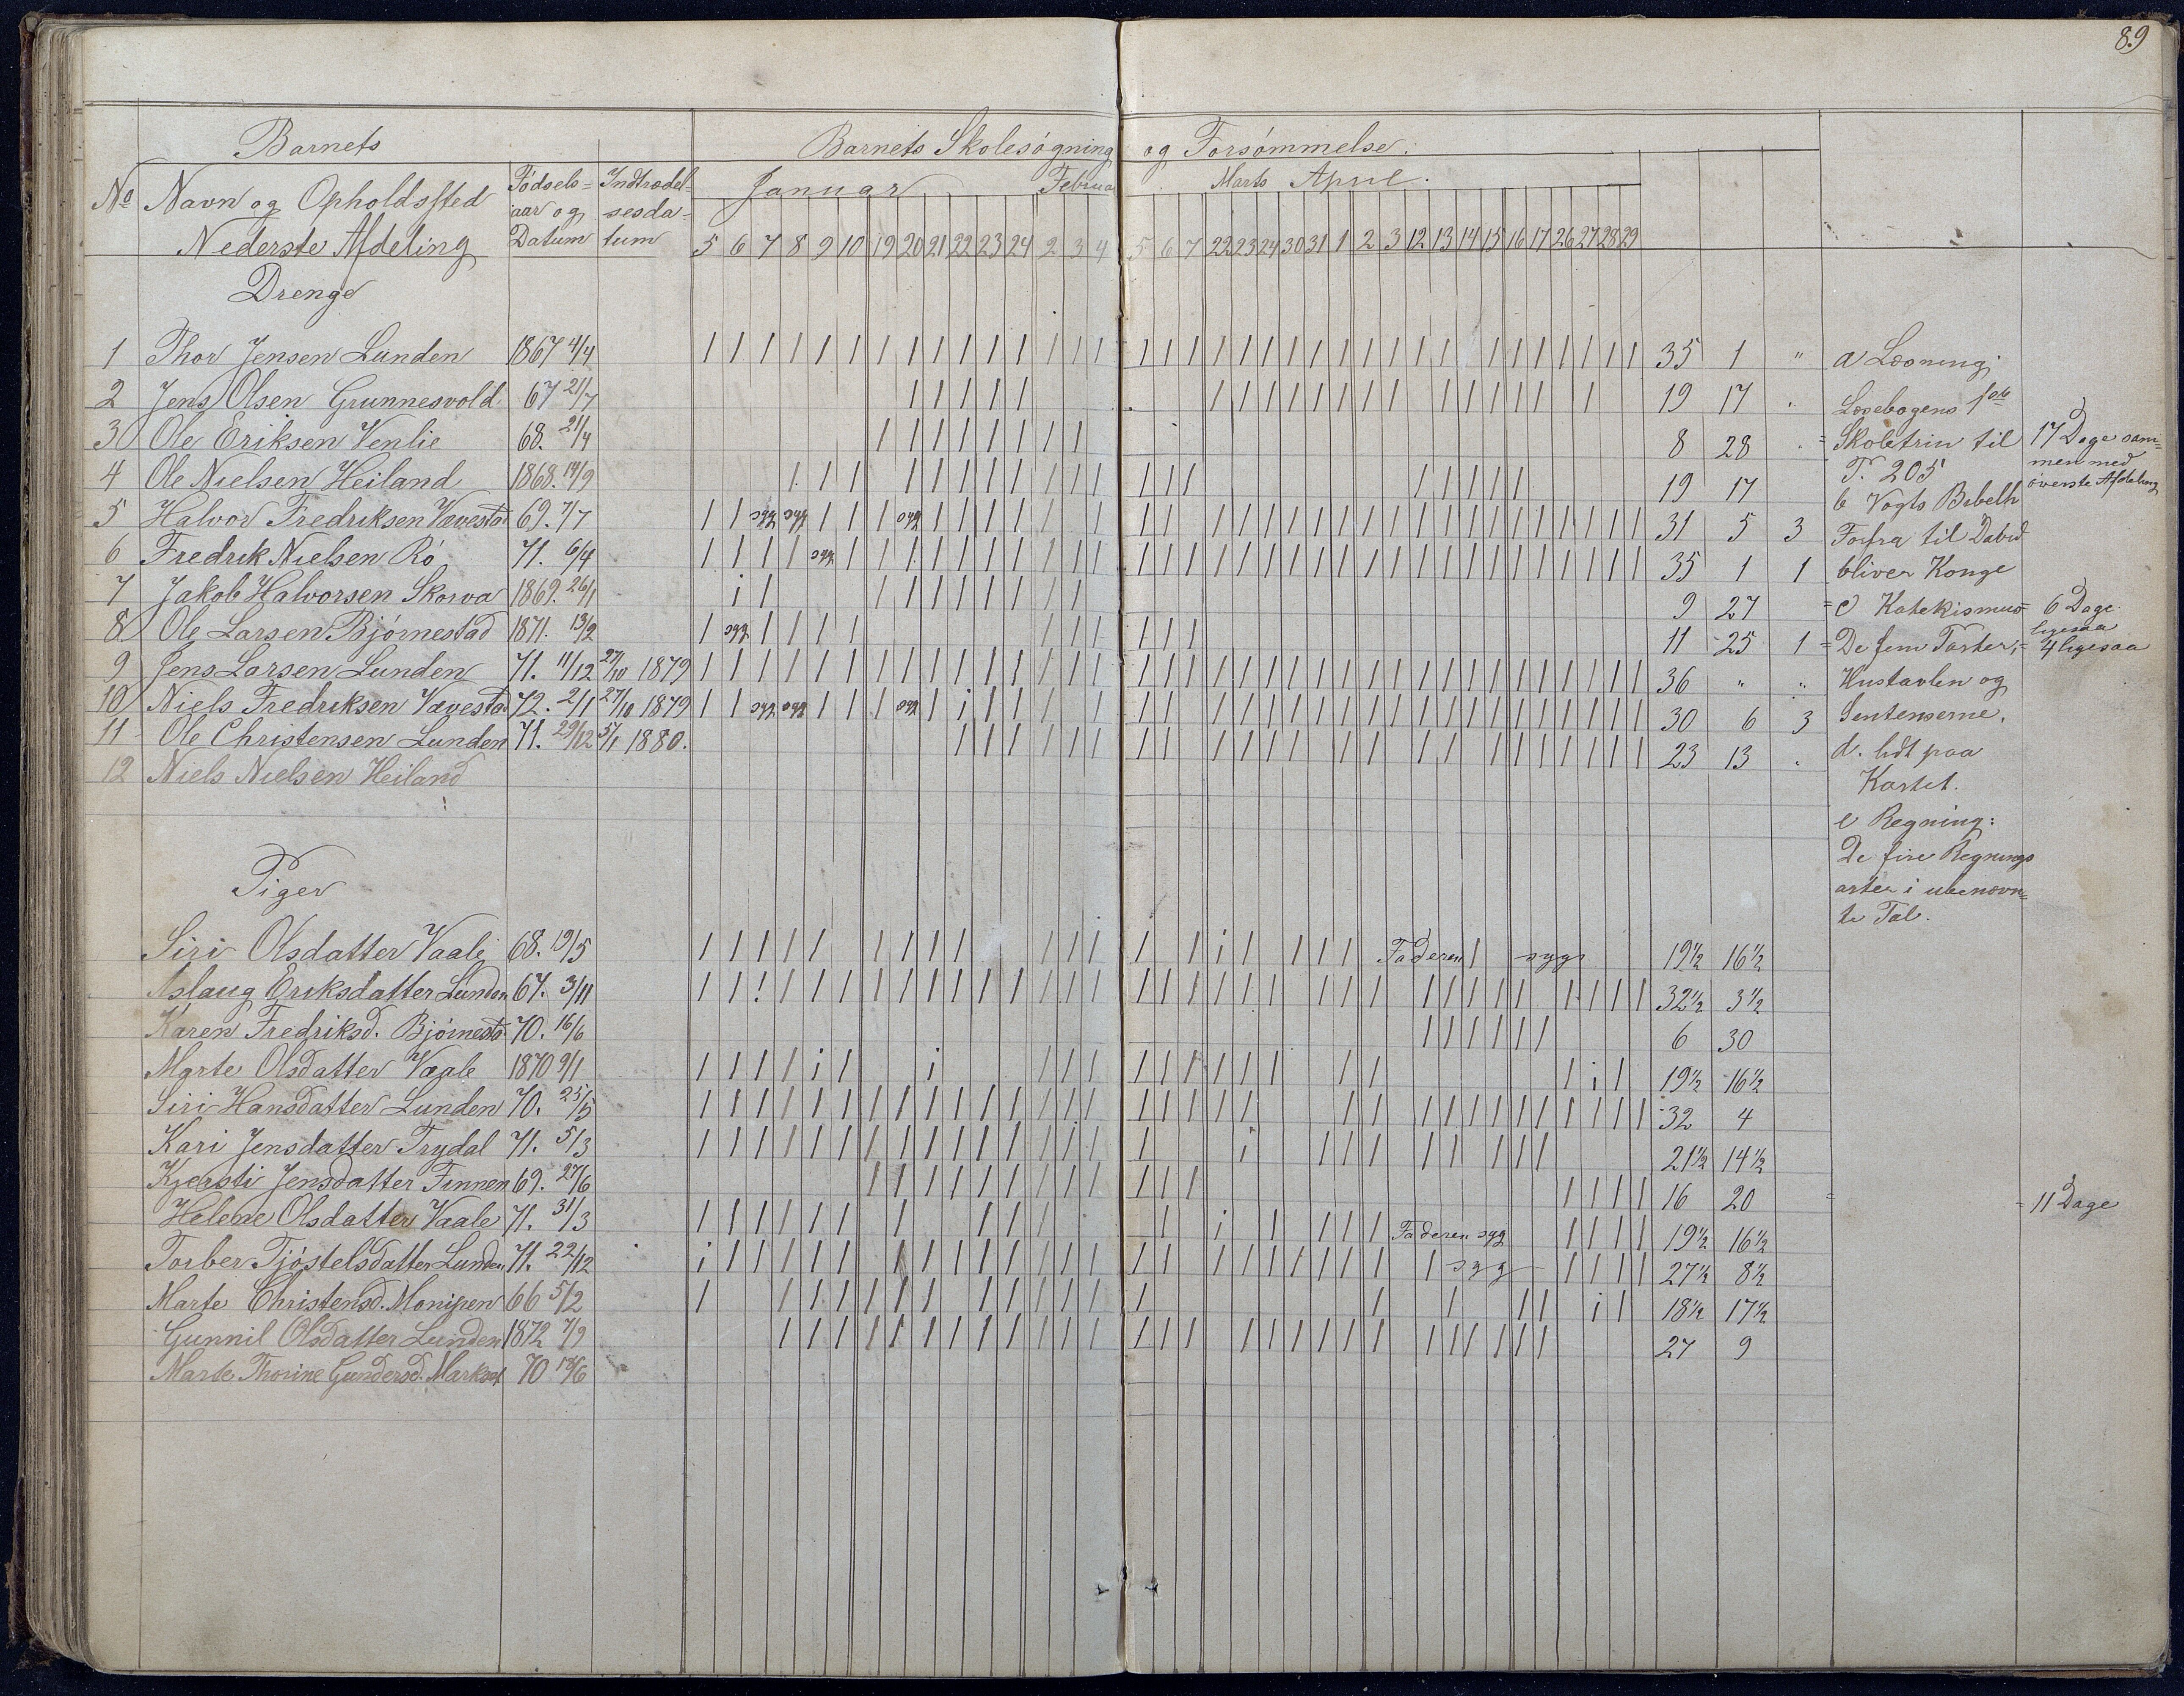 89
Barnets
Barnets Skolesøgning og Forsømmelse.
No Navn og Opholdssted Fødsels= aar og Datum Indtrædel= sesda= tum
Januar Februar Marts April.
Nederste Afdeling
5 6 7 8 9 10 19 20 21 22 23 24 2 3 4 5 6 7 22 23 24 30 31 1 2 3 12 13 14 15 16 17 26 27 28 29
Drenge
1 Thor Jensen Lunden 1867 4/4 35 1 "
2 Jens Olsen Grunnesvold 67 21/7 19 17 "
3 Ole Eriksen Venlie 68. 21/4 8 28 "
4 Ole Nielsen Heiland 1868. 14/9 19 17
5 Halvor Fredriksen Vævestad 69. 7/7 syg syg syg 31 5 3
6 Fredrik Nielsen Rø 71. 6/4 syg 35 1 1
7 Jakob Halvorsen Skorva 1869. 26/1 9 27
8 Ole Larsen Bjørnestad 1871. 13/2 syg 11 25 1
9 Jens Larsen Lunden 71. 11/12 27/10 1879 36 " "
10 Niels Fredriksen Vævestad 72. 2/1 27/10 1879 syg syg syg 30 6 3
11 Ole Christensen Lunden 71. 29/12 5/1 1880. 23 13 "
12 Niels Nielsen Heiland
a Læsning:
Læsebogens 1ste
Skoletrin til
P. 205
b Vogts Bibelh
Forfra til David
bliver Konge
c Katekismus
De fem Parter,
Hustavlen og
Sentenserne.
d. lidt paa
Kartet.
e Regning:
De fire Regnings
arter i ubenævn=
te Tal.
= 17 Dage sam=
men med
øverste Afdeling
= 6 Dage
ligesaa
= 4 ligesaa
Piger
Siri Olsdatter Vaale 68. 19/5 Faderen syg 19½ 16½
Aslaug Eriksdatter Lunden 67. 3/11 32½ 3½
Karen Fredriksd. Bjørnestd. 70. 16/6 6 30
Marte Olsdatter Vaale 1870 9/1 19½ 16½
Siri Hansdatter Lunden 70. 25/5 32 4
Kari Jensdatter Trydal 71. 5/3 21½ 14½
Kjersti Jensdatter Finnen 69. 27/6 16 20 = 11 Dage
Helene Olsdatter Vaale 71. 31/3 Faderen syg 19½ 16½
Torber Tjøstelsdatter Lunden 71. 22/12 syg 27½ 8½
Marte Christensd. Monipen 66 5/2 18½ 17½
Gunnil Olsdatter Lunden 1872 7/9 27 9
Marte Thorine Gundersd. Markset 70 18/6